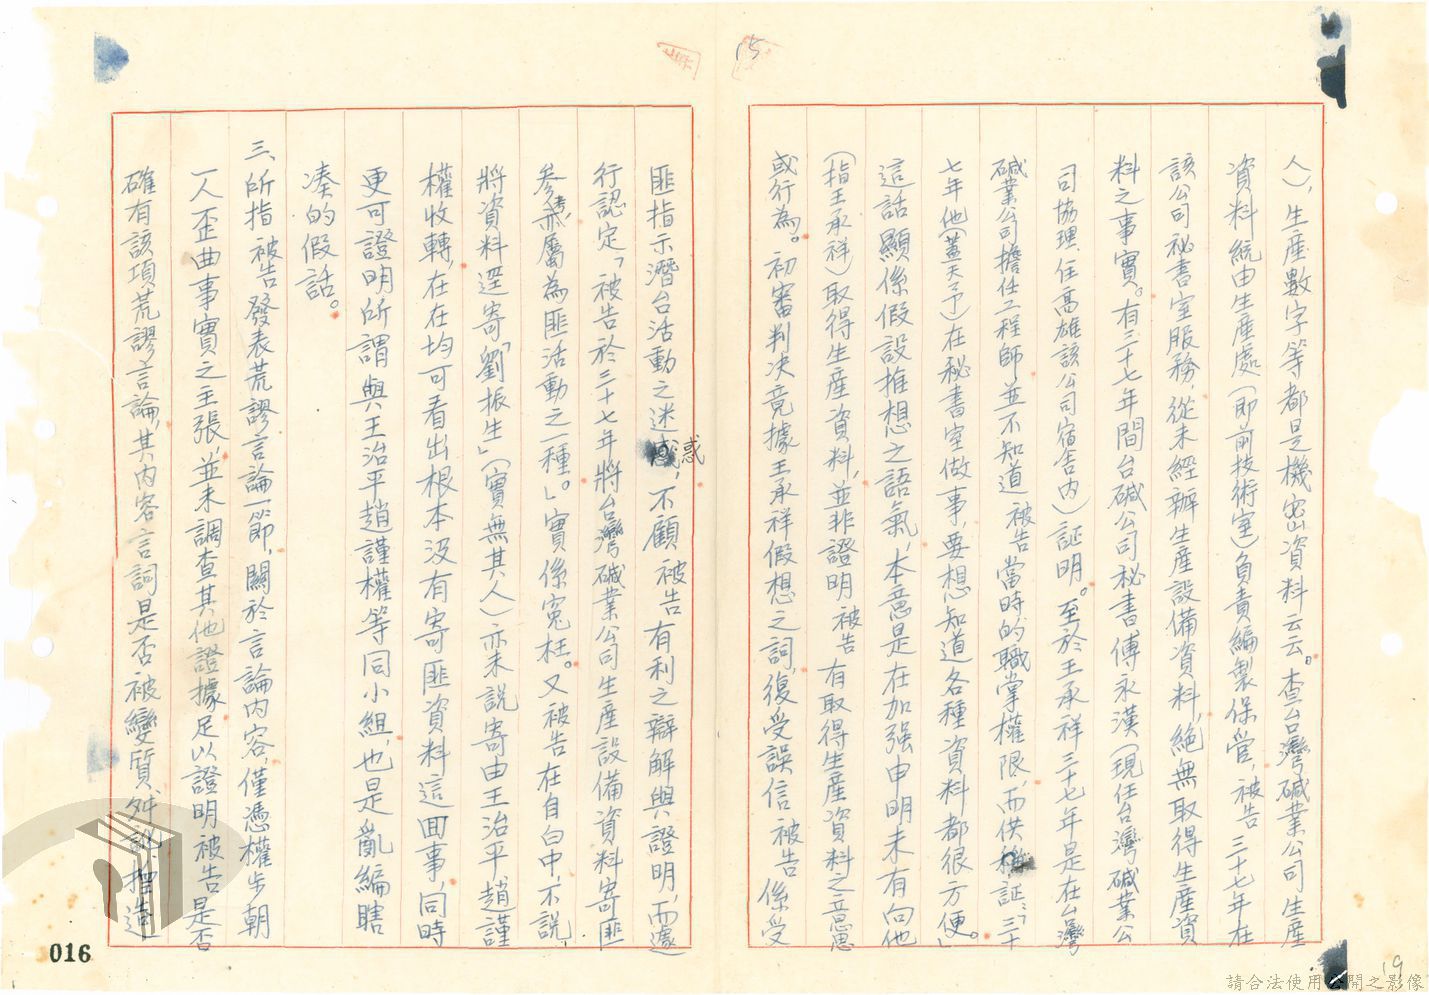 15
人），生產數字等都是機密資料云云。查台灣碱業公司生產
資料統由生產處（即前技術室）負責編製保管，被告三十七年在
該公司祕書室服務，從未經辦生產設備資料，絕無取得生產資
料之事實。有三十七年間台碱公司秘書傅永漢（現任台灣碱業公
司協理，住高雄該公司宿舍內）証明。至於王承祥三十七年是在台灣
碱業公司擔任工程師並不知道被告當時的職掌權限，而供稱証：「三十
七年他（蓋天予）在秘書室做事，要想知道各種資料都很方便。」
這話顯係假設推想之語氣，本意是在加强申明未有向他
（指王承祥）取得生產資料，並非證明被告有取得生產資料之意思
或行為。初審判决竟據王承祥假想之詞，復受誤信被告係受
匪指示潛台活動之迷惑，不顧被告有利之辯解與證明，而遽
行認定「被告於三十七年將台灣碱業公司生產設備資料寄匪
參考，亦屬為匪活動之一種。」實係冤枉。又被告在自白中，不說
將資料逕寄「劉振生」（實無其人）亦未說寄由王治平趙謹
權收轉，在在均可看出根本沒有寄匪資料這回事，同時
更可證明所謂與王治平趙謹權等同小組，也是亂編瞎
凑的假話。
三、所指被告發表荒謬言論一節，關於言論內容，僅憑權步朝
一人歪曲事實之主張，並未調查其他證據足以證明被告是否
確有該項荒謬言論，其內容言詞是否被變質、捏造
016
19
請合法使用公開之影像